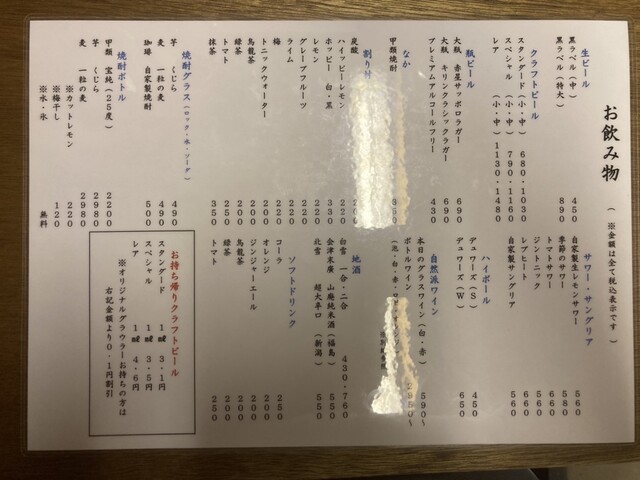 お飲み物
(※金額は全て税込表示です)
生ビール
黒ラベル(中) 450
黒ラベル(特大) 890
クラフトビール
スタンダード(小・中) 680・1030
スペシャル(小・中) 790・1160
レア(小・中) 1130・1480
瓶ビール
大瓶 赤星サッポロラガー 690
大瓶 キリンクラシックラガー 690
プレミアムアルコールフリー 430
なか
甲類焼酎
割り
炭酸
ハイッピーレモン 220
ホッピー 白・黒 220
レモン
グレープフルーツ
ライム
梅 220
トニックウォーター
烏龍茶 200
緑茶 200
トマト 250
抹茶 350
焼酎グラス(ロック・水・ソーダ)
芋 くじら 490
麦 一粒の麦 490
珈琲 自家製焼酎 500
焼酎ボトル
甲類 宝純(25度) 2200
芋 くじら 2980
麦 一粒の麦 2980
※カットレモン 220
※梅干し 120
※水・氷 無料
サワー・サングリア
自家製生レモンサワー 560
季節のサワー 580
トマトサワー 560
ジントニック 560
レブヒート 560
自家製サングリア 560
ハイボール
デュワーズ(S) 450
デュワーズ(W) 650
自然派ワイン
本日のグラスワイン(白・赤) 590～
ボトルワイン 2950～
地酒
白雪 一合・二合 430・760
会津末廣 山廃純米酒(福島) 550
北雪 超大辛口(新潟) 550
ソフトドリンク
コーラ 250
オレンジ 200
ジンジャーエール 200
烏龍茶 200
緑茶 200
トマト 250
お持ち帰りクラフトビール
スタンダード 1㎖ 3.1円
スペシャル 1㎖ 3.5円
レア 1㎖ 4.6円
※オリジナルグラウラーお持ちの方は
右記金額より0.1円割引